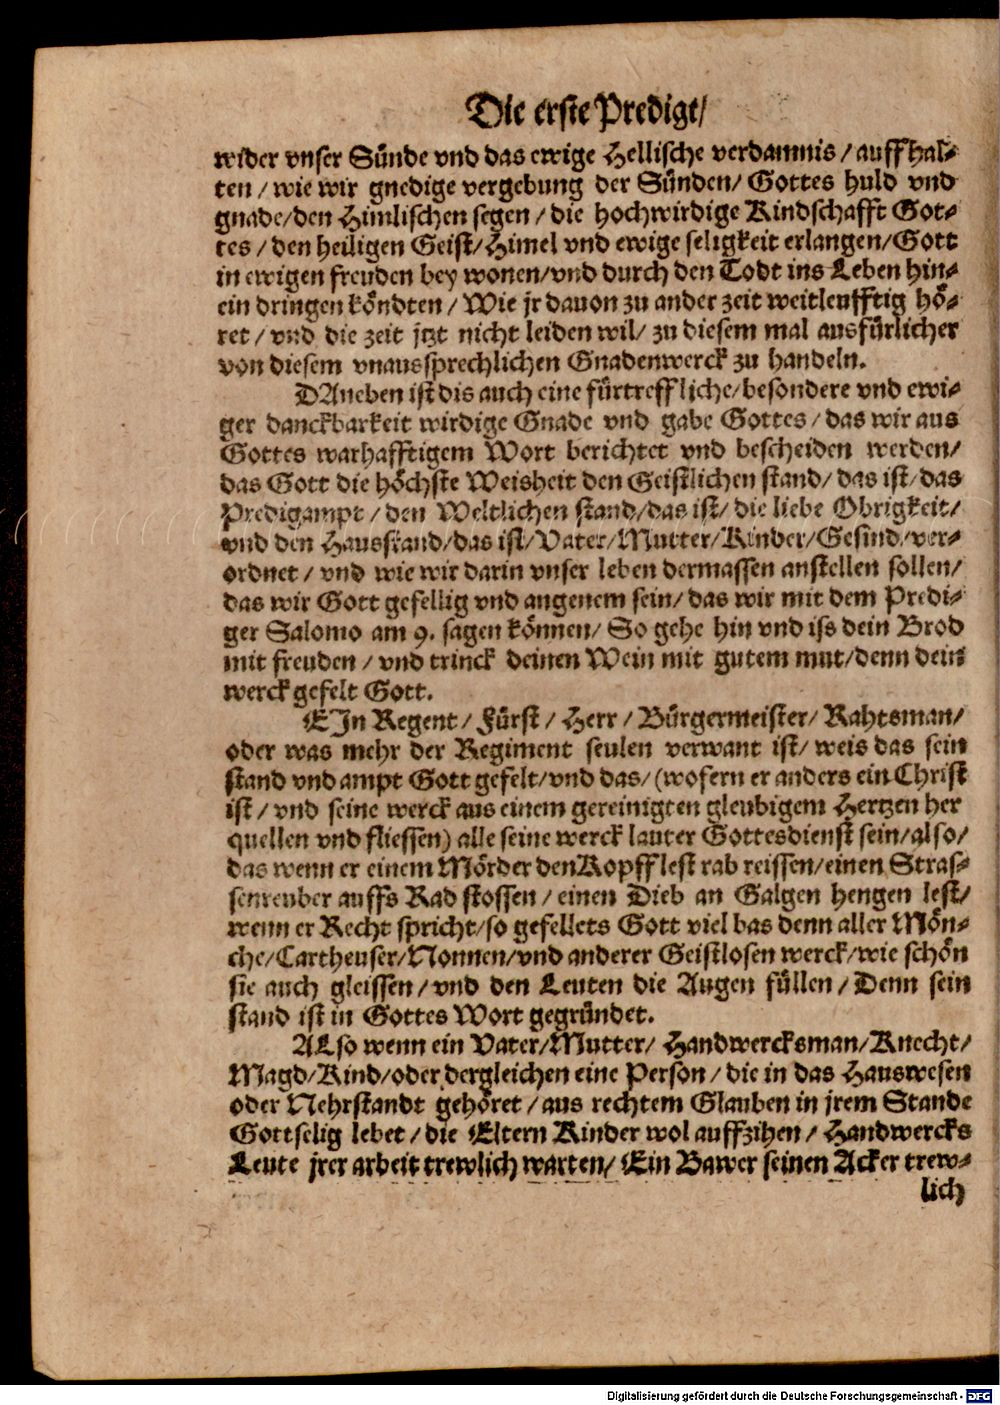 Die erste Predigt/
wider vnser Sünde vnd das ewige Hellische verdamnis / auffhal-
ten / wie wir gnedige vergebung der Sünden/ Gottes huld vnd
gnade/den Himlischen segen / die hochwirdige Kindschafft Got-
tes / den heiligen Geist/Himel vnd ewige seligkeit erlangen/Gott
in ewigen freuden bey wonen/vnd durch den Todt ins Leben hin-
ein dringen köndten / Wie jr dauon zu ander zeit weitleufftig hö-
ret / vnd die zeit jtzt nicht leiden wil/ zu diesem mal ausfürlicher
von diesem vnaussprechlichen Gnadenwerck zu handeln.
DAneben ist dis auch eine fürtreffliche/besondere vnd ewi-
ger danckbarkeit wirdige Gnade vnd gabe Gottes / das wir aus
Gottes warhafftigem Wort berichtet vnd bescheiden werden/
das Gott die höchste Weisheit den Geistlichen stand/ das ist/ das
Predigampt / den Weltlichen stand/das ist/ die liebe Obrigkeit/
vnd den Hausstand/das ist/Vater/Mutter/Kinder/Gesind/ver-
ordnet / vnd wie wir darin vnser leben dermassen anstellen sollen/
das wir Gott gefellig vnd angenem sein/ das wir mit dem Predi-
ger Salomo am 9. sagen können/ So gehe hin vnd iss dein Brod
mit freuden / vnd trinck deinen Wein mit gutem mut/denn dein
werck gefelt Gott.
EJn Regent/ Fürst / Herr / Bürgermeister/ Rahtsman/
oder was mehr der Regiment seulen verwant ist/ weis das sein
stand vnd ampt Gott gefelt/vnd das/ (wofern er anders ein Christ
ist / vnd seine werck aus einem gereinigten gleubigem Hertzen her
quellen vnd fliessen) alle seine werck lauter Gottesdienst sein/also/
das wenn er einem Mörder den Kopff lest rab reissen/einen Stras-
senreuber auffs Rad stossen / einen Dieb an Galgen hengen lest/
wenn er Recht spricht/so gefellets Gott viel bas denn aller Mön-
che/Cartheuser/Nonnen/vnd anderer Geistlosen werck/wie schön
sie auch gleissen/vnd den Leuten die Augen füllen / Denn sein
stand ist in Gottes Wort gegründet.
ALso wenn ein Vater/Mutter/ Handwercksman/Knecht/
Magd/Kind/oder dergleichen eine Person / die in das Hauswesen
oder Nehrstandt gehöret / aus rechtem Glauben in jrem Stande
Gottselig lebet / die Eltern Kinder wol auffzihen / Handwercks
Leute jrer arbeit trewlich warten/ Ein Bawer seinen Acker trew-
lich
Digitalisierung gefördert durch die Deutsche Forschungsgemeinschaft - DFG